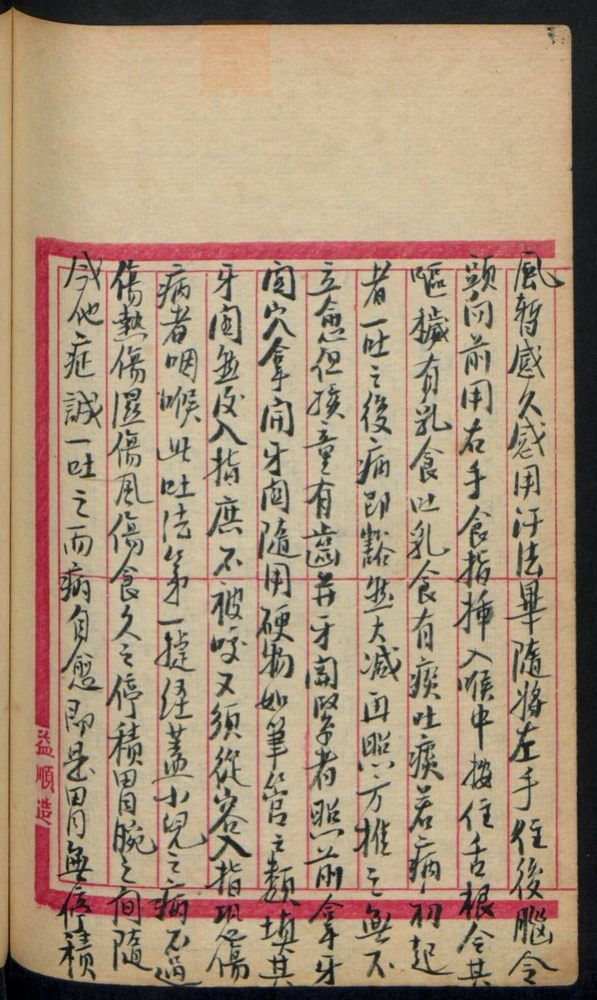 風暫感久感用汗法畢隨將左手住後腦令
頭向前用右手食指揷入喉中按住舌根令其
嘔穢有乳食吐乳食有痰吐痰若病初起
者一吐之後病即豁然大减再照方推之無不
立愈但孩童有齒并牙関緊者照前拿牙
関穴拿開牙関隨用硬物如筆管之類填其
牙関然後入指庶不被咬又須從容入指恐傷
病者咽喉此吐法第一捷径蓋小兒之病不過
傷熱傷濕傷風傷食久之停積胃脘之间隨
令他症誠一吐之而病自愈即是胃無停積
益順造